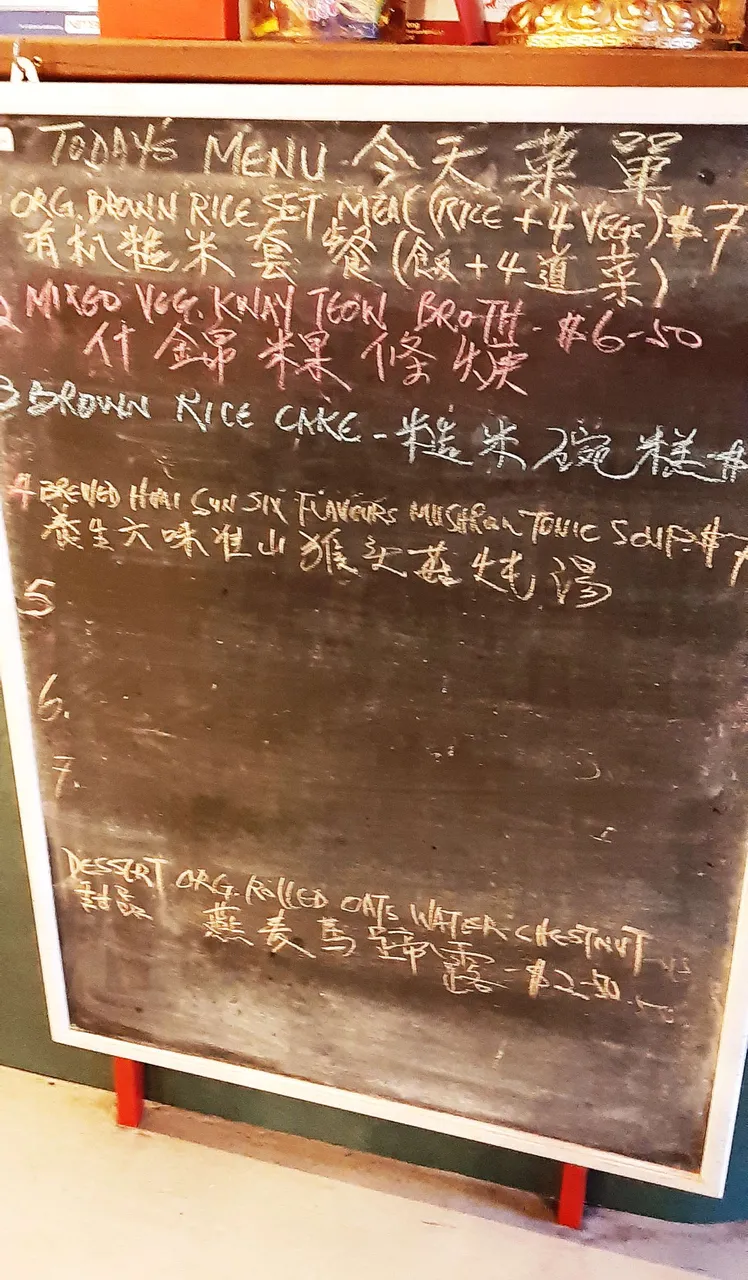 TODAY'S MENU 今天菜單
ORG. BROWN RICE SET MEAL (RICE + 4 VEGS) $.7
有机糙米套餐(飯+4道菜)
MIXED VEG. KWAY TEOW BROTH - $6-50
什錦粿條煥
3 BROWN RICE CAKE - 糙米碗糕 $
4 BREWED HUAI SUN SIX FLAVOURS MUSHROOM TONIC SOUP $7
養生六味淮山猴头菇炖湯
5
6.
7.
DESSERT ORG. ROLLED OATS WATER CHESTNUT
甜品 燕麦馬蹄露 - $2-50